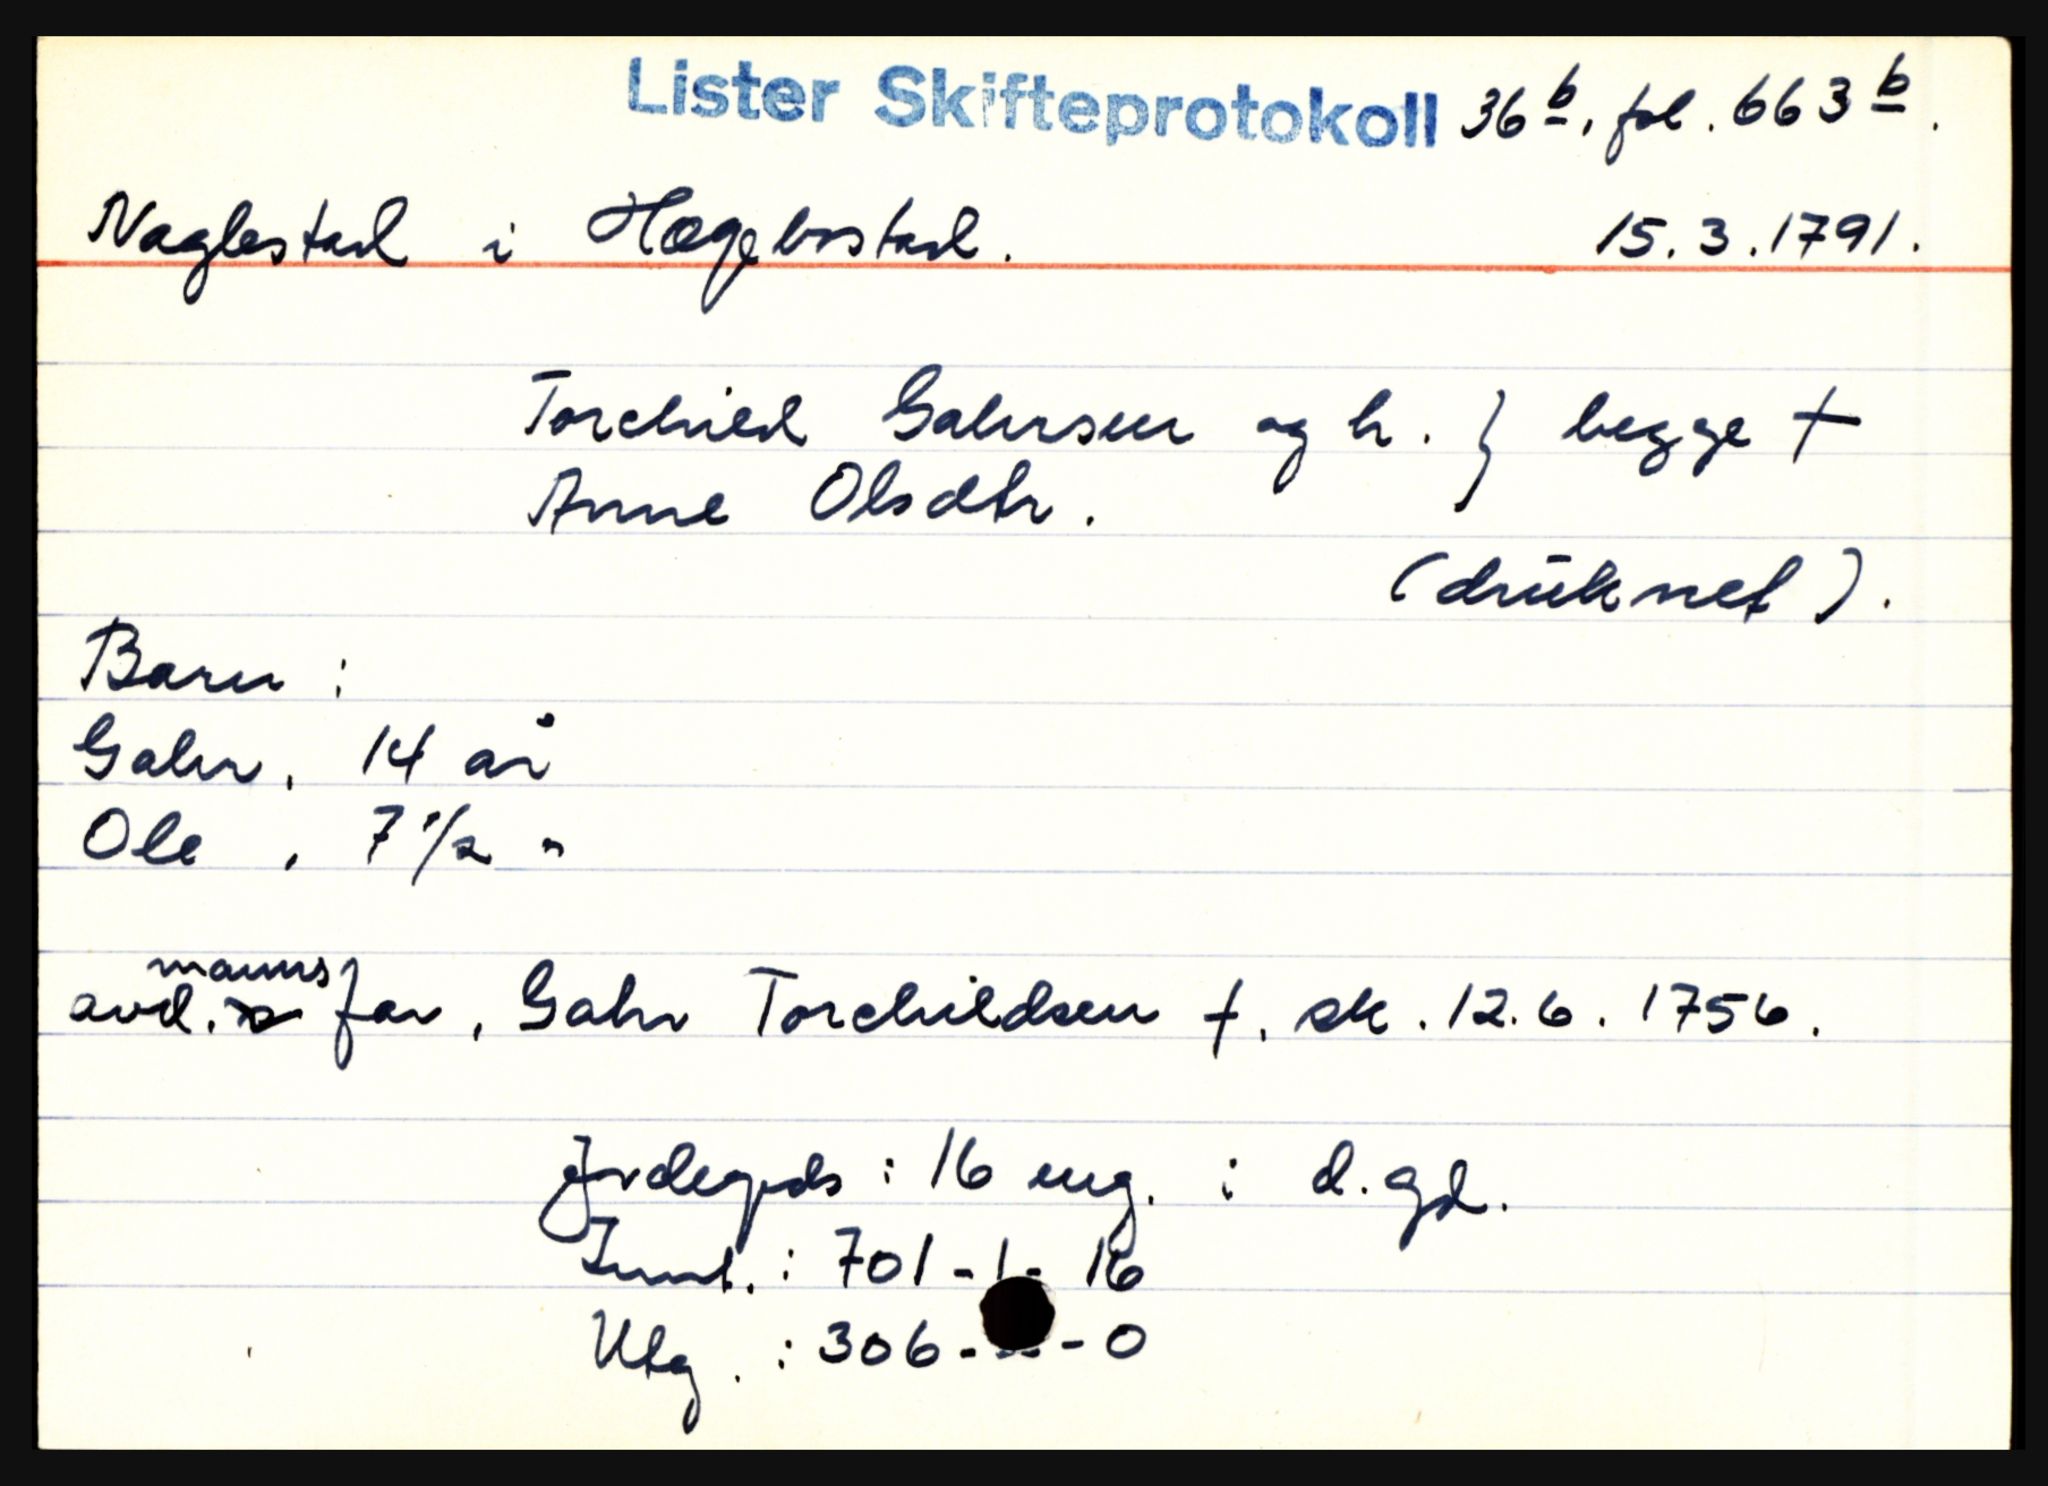 Lister Skifteprotokoll 36 b, fol. 663 b.
Naglestad i Hægebostad. 15.3.1791.
Torchild Gahrsen og h. } begge †
Anne Olsdtr.
(drüknet).
Barn:
Gahr, 14 år
Ole, 7 1/2 "
manns
avd. far, Gahr Torchildsen †. sk. 12.6.1756.
Jordegods: 16 eng. i d. gd.
Innt.: 701-1-16
Utg.: 306- -0